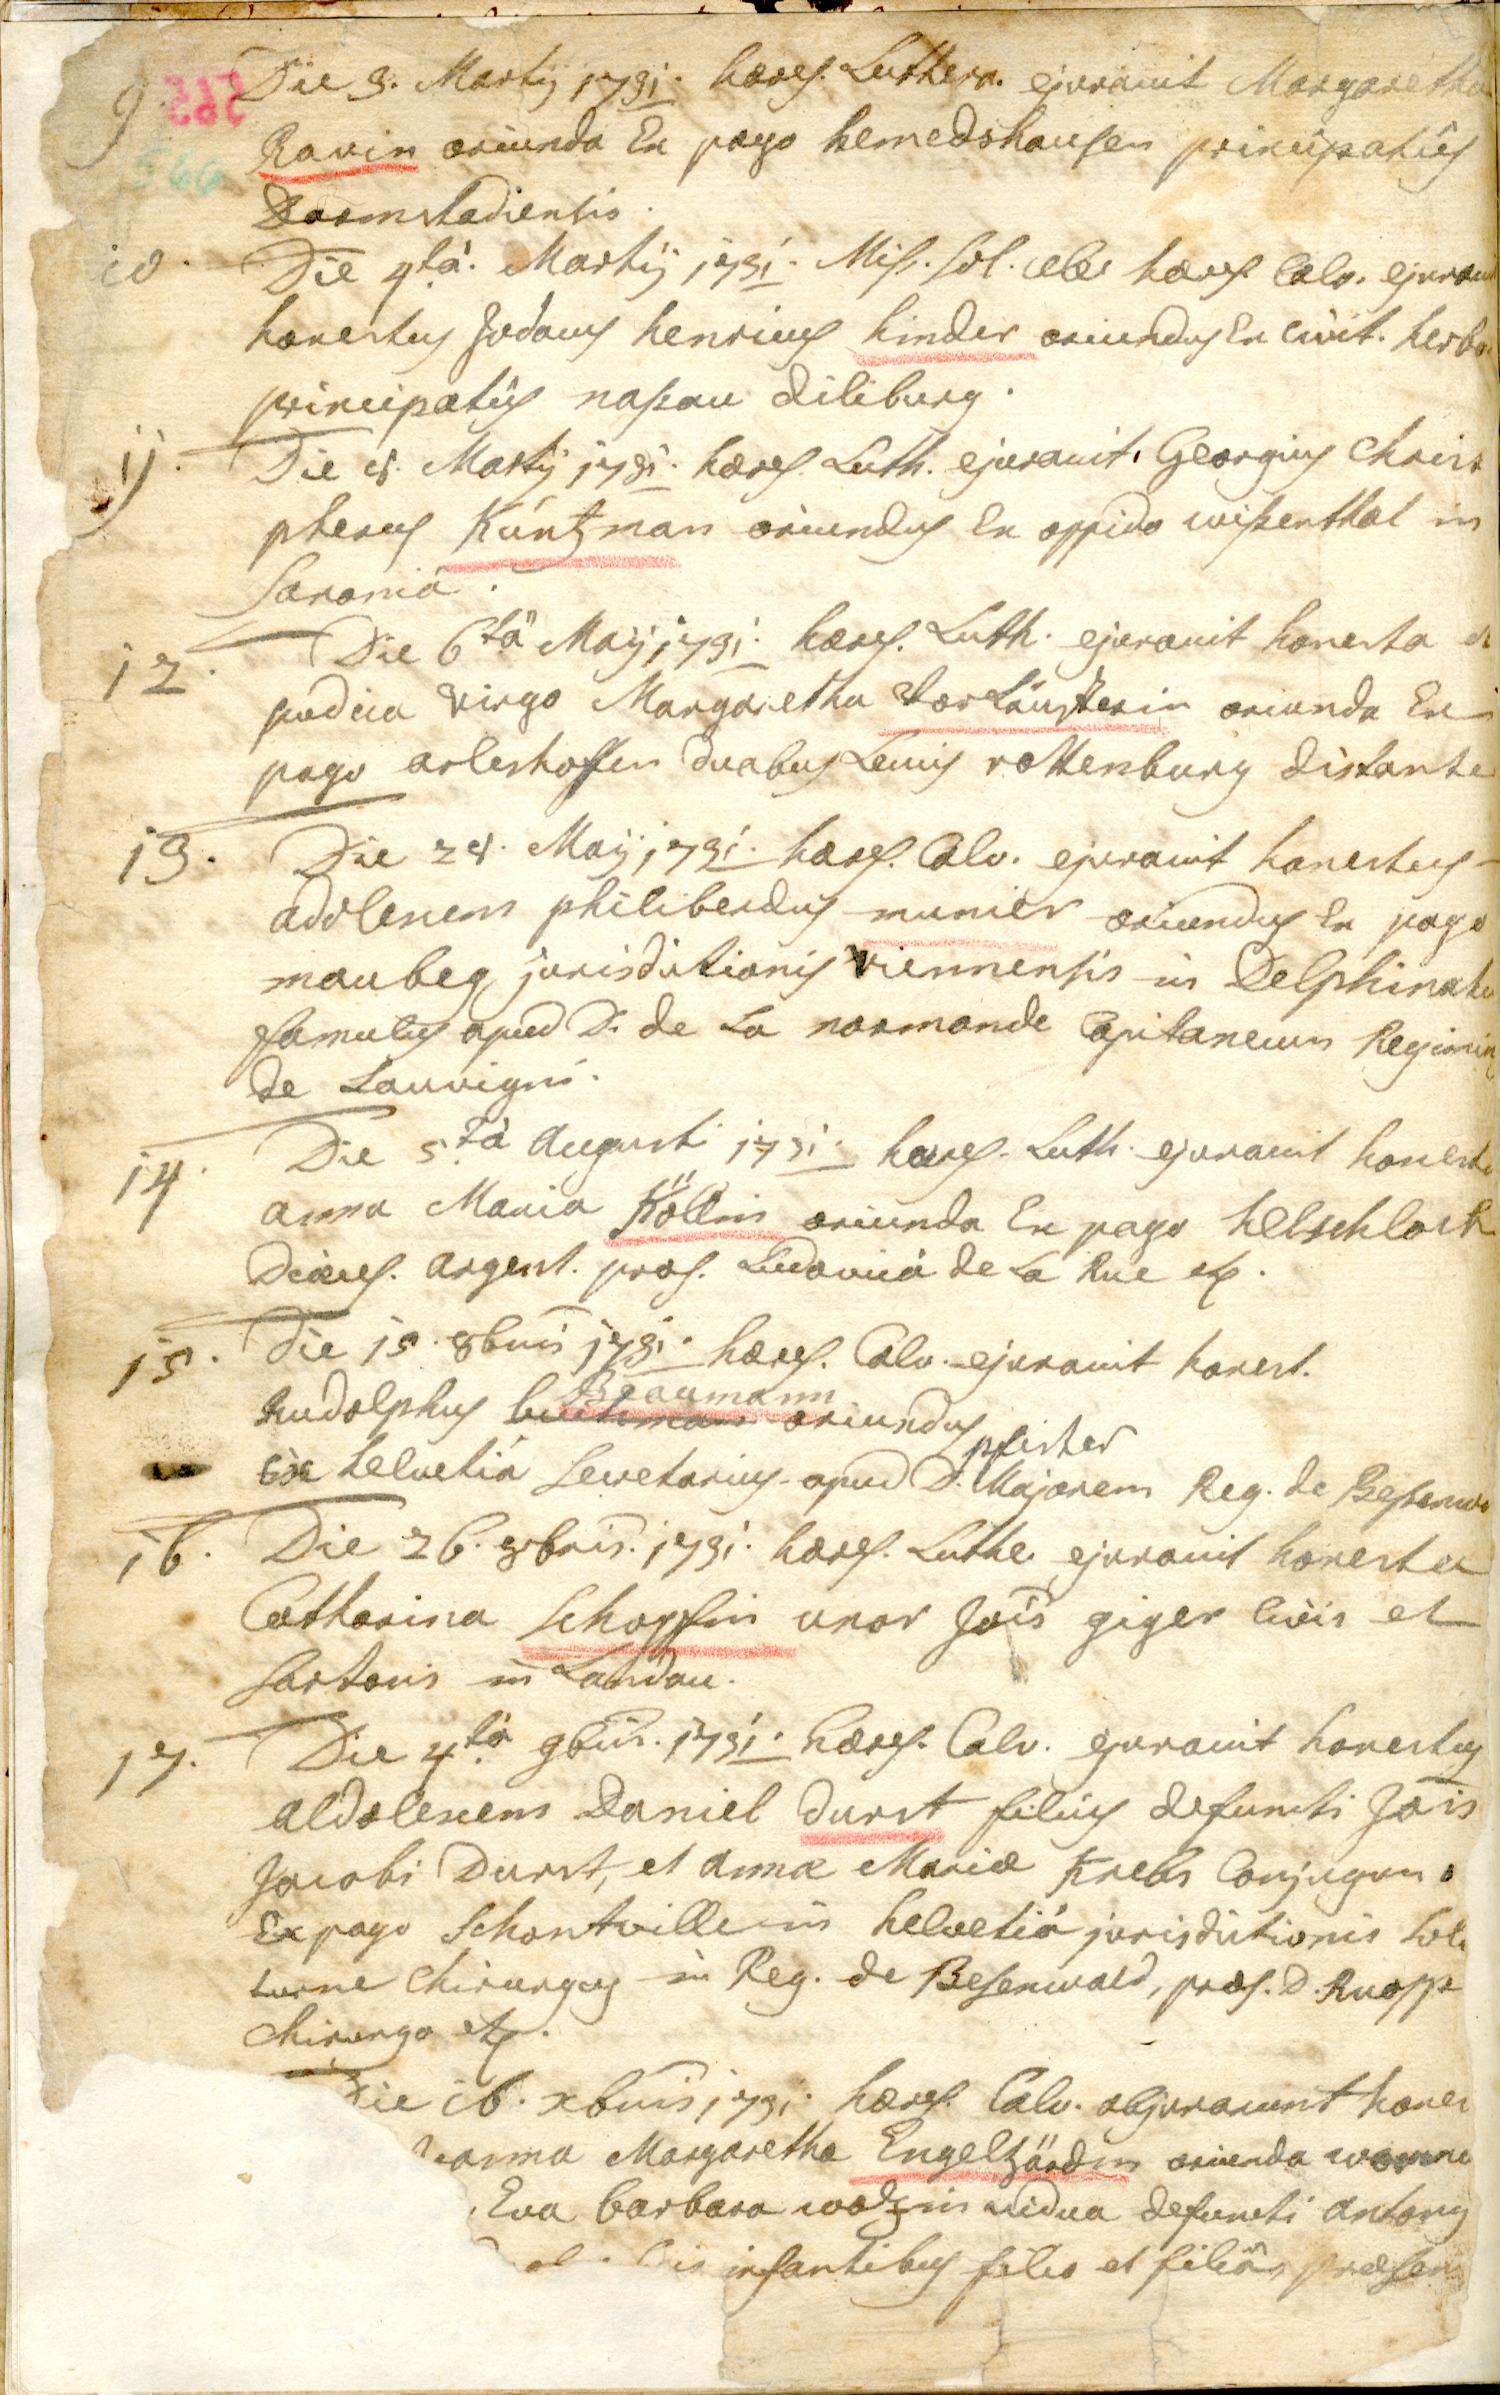 9. 565 Die 3. Martij 1731. hæres. Luther. ejuravit Margaretha
566 Ravin oriunda Ex pago hemedshausen principatûs
Darmstadiensis.
10. Die 4.tâ Martij 1731. Miss. sol. hæres. Calv. ejuravit
honestus Jodocus henricus hinder oriundus Ex civit. herbo
principatûs nassau diliburg.
11. Die 8. Martij 1731. hæres. Luth. ejuravit. Georgius Christ
pherus Kúntzman oriundus Ex oppido wissenthal in
Saxoniâ.
12. Die 6.tâ Maij 1731. hæres. Luth. ejuravit honesta et
pudica virgo Margaretha oriunda Ex
pago arleshoffen duabus Leucis rottenburg distante
13. Die 28. Maij 1731. hæres. Calv. ejuravit honestus
adolescens philibertus munier oriundus Ex pago
maubeg jurisdictionis viennensis in Delphinatu
famulus apud D. de La normande Capitaneum Regimin
de Louvigni.
14. Die 5.tâ Augusti 1731. hæres. Luth. ejuravit honesta
anna Maria Köllin oriunda Ex pago helschloch
Diœces. argent. præs. Ludovicâ de La Rue etc.
15. Die 15. 8bris 1731. hæres. Calv. ejuravit honest.
Beaumann
Rudolphus oriundus
pfister
Ex helvetiâ secretarius apud D. Majorem Reg. de Besenwa
16. Die 26. 8bris. 1731. hæres. Luthe ejuravit honesta
Catharina Schopffin uxor Jois giger Civis et
sartoris in Landau.
17. Die 4.tâ 9bris. 1731. hæres. Calv. ejuravit honestus
aldolescens Daniel durst filius defuncti Jois
Jacobi Durst, et annæ Mariæ Krebs Conjugum
Ex pago Schontville in helvetiâ jurisdictionis solo
turne Chirurgus in Reg. de Besenwald, præs. D. Ruopp
Chirurgo etc.
Die 16. xbris 1731. hæres. Calv. abjurarunt hones
anna Margaretha Engeltzärdin oriunda
Eva barbara wolzin vidua defuncti antonij
infantibus filio et filiâ, præsen